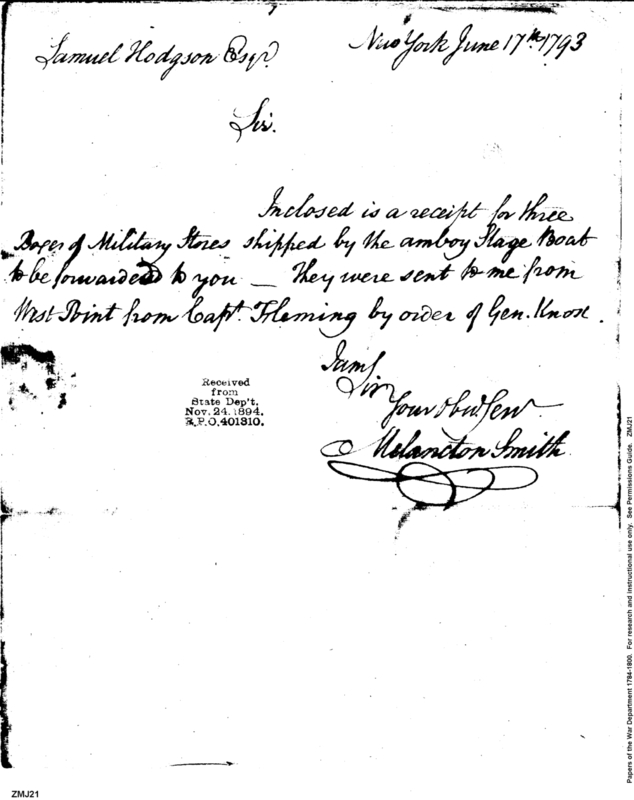 Samuel Hodgson Esqr.
New York June 17th 1793
Sir.
Inclosed is a receipt for three
Boxes of Military Stores shipped by the amboy Stage Boat
to be forwarded to you — They were sent to me from
West Point from Capt. Fleming by order of Gen. Knox.
I am
Sir
Your Obed. Serv
Melancton Smith
Received
from
State Dep't.
Nov. 24. 1894.
R.P.O. 401310.
Papers of the War Department 1784-1800. For research and instructional use only. See Permissions Guide. ZMJ21
ZMJ21